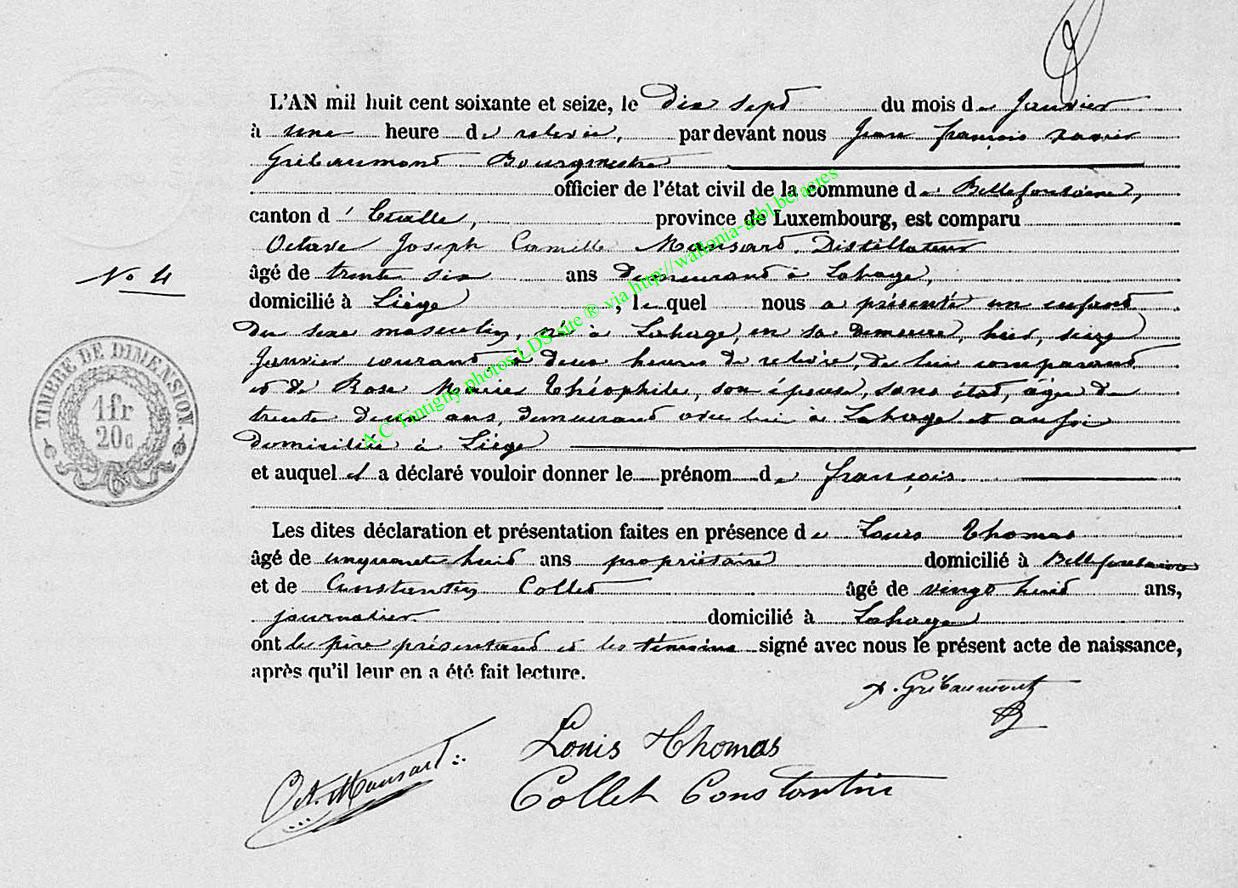 L'AN mil huit cent soixante et seize, le dix sept du mois de Janvier
à une heure de relevée, par devant nous Jean françois xavier
Gribaumont Bourgmestre
officier de l'état civil de la commune de Bellefontaine,
canton d'Etalle, province de Luxembourg, est comparu
Octave Joseph Camille Mansart, Distillateur
No 4
âgé de trente six ans demeurant à Lahage,
domicilié à Liège, lequel nous a présenté un enfant
du sexe masculin, né à Lahage, en sa demeure, hier, seize
Janvier courant à deux heures de relevée, de lui comparant
et de Rose Théophile, son épouse, sans état, âgée de
trente deux ans, demeurant avec lui à Lahage et aussi
domiciliée à Liège
et auquel il a déclaré vouloir donner le prénom de françois
Les dites déclaration et présentation faites en présence de Louis Thomas
âgé de cinquante huit ans propriétaire domicilié à Bellefontaine
et de Constantin Collet âgé de vingt huit ans,
journalier domicilié à Lahage
ont le père présentant et les témoins signé avec nous le présent acte de naissance,
après qu'il leur en a été fait lecture.
x. Gribaumont
Louis Thomas
Oct. Mansart
Collet Constantin
TIMBRE DE DIMENSION.
1fr
20c
A.C Tintigny photos LDS site ® via http://wallonia-asbl.be/actes